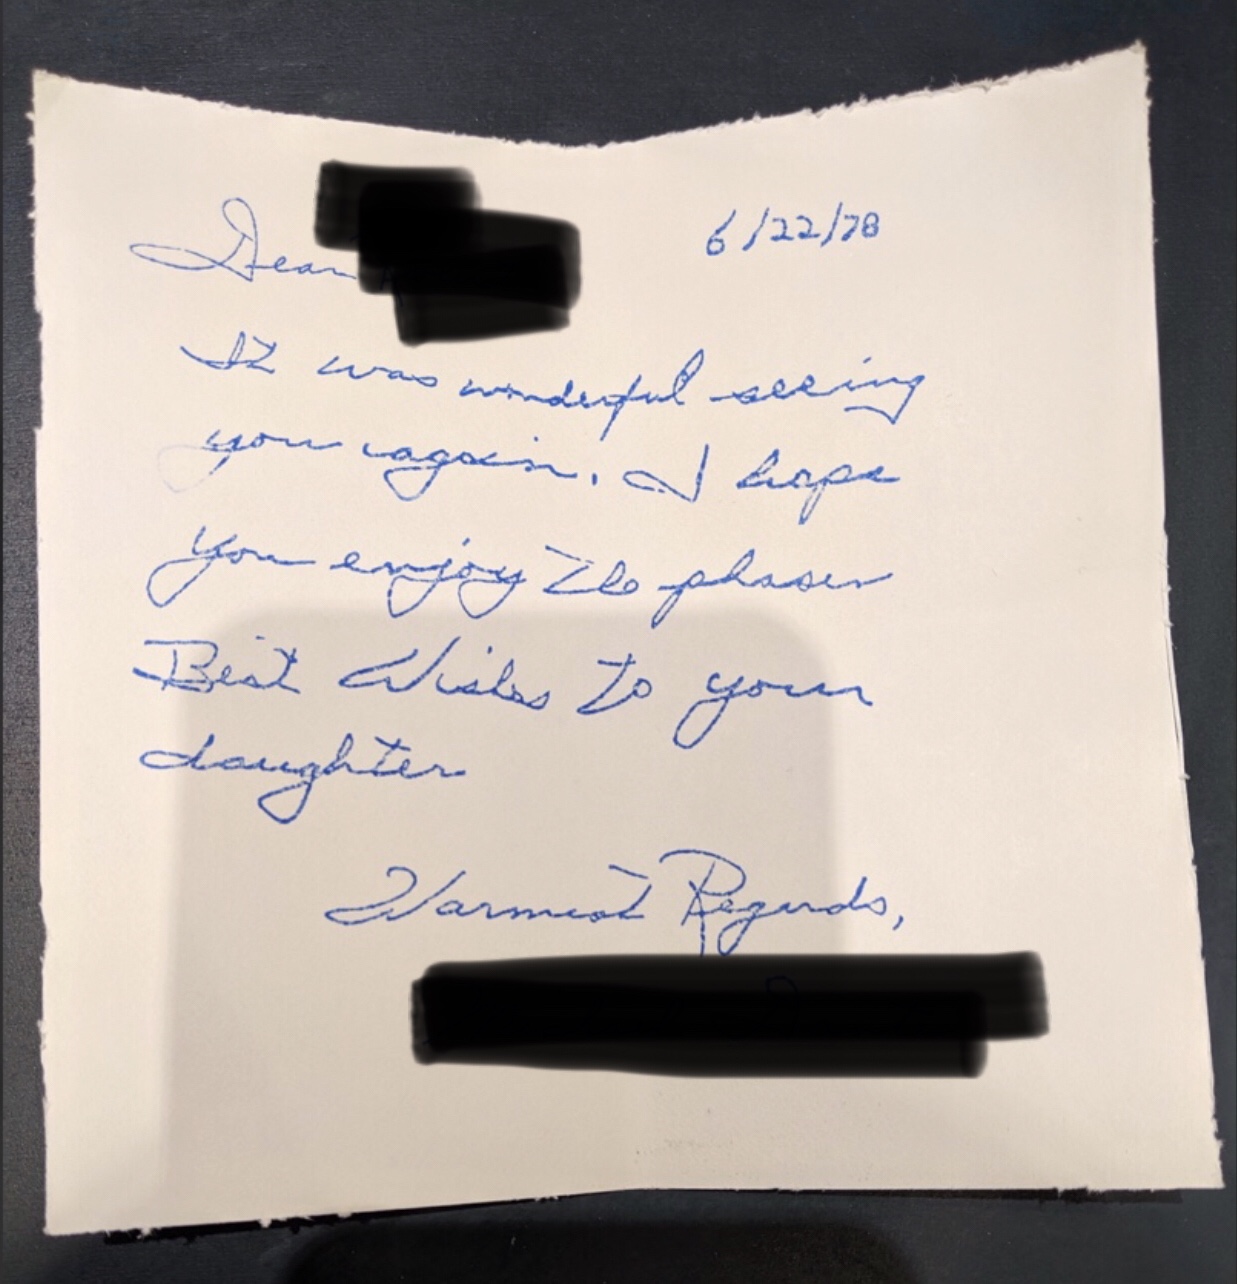 Dear
6/22/78
It was wonderful seeing
you again. I hope
you enjoy the phaser
Best Wishes to your
daughter
Warmest Regards,